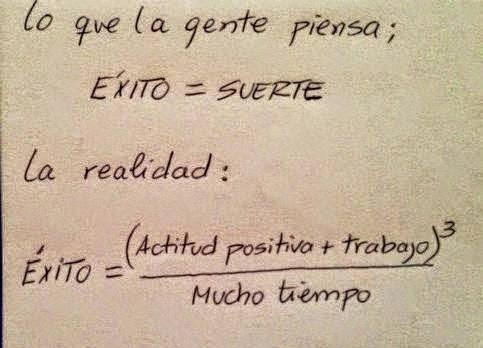 lo que la gente piensa;
ÉXITO = SUERTE
la realidad:
ÉXITO = (Actitud positiva + trabajo)³
Mucho tiempo